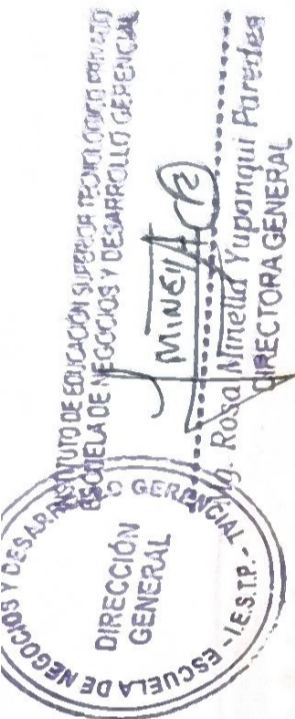 INSTITUTO DE EDUCACIÓN SUPERIOR TECNOLÓGICO PRIVADO
ESCUELA DE NEGOCIOS Y DESARROLLO GERENCIAL
Mg. Rosa Minella Yupanqui Paredes
DIRECTORA GENERAL
ESCUELA DE NEGOCIOS Y DESARROLLO GERENCIAL - I.E.S.T.P. -
DIRECCIÓN
GENERAL